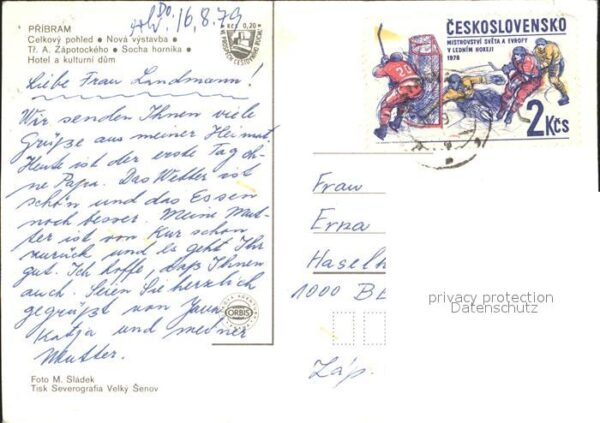 Do. 16.8.79
PŘÍBRAM
Celkový pohled • Nová výstavba •
Tř. A. Zápotockého • Socha horníka •
Hotel a kulturní dům
Kčs 0,20
ČESKOSLOVENSKO
MISTROVSTVÍ SVĚTA A EVROPY
V LEDNÍM HOKEJI
1978
20
2 Kčs
Liebe Frau Landmann!
Wir senden Ihnen viele
Grüße aus meiner Heimat.
Heute ist der erste Tag oh-
ne Papa. Das Wetter ist
schön und das Essen
noch besser. Meine Mut-
ter ist von Kur schon
zurück und es geht Ihr
gut. Ich hoffe, daß Ihnen
auch. Seien Sie herzlich
gegrüßt von Jana
Katja und meiner
Mutter.
ORBIS
Frau
Erna
Haselh
1000 BE
privacy protection
Datenschutz
Záp.
Foto M. Sládek
Tisk Severografia Velký Šenov